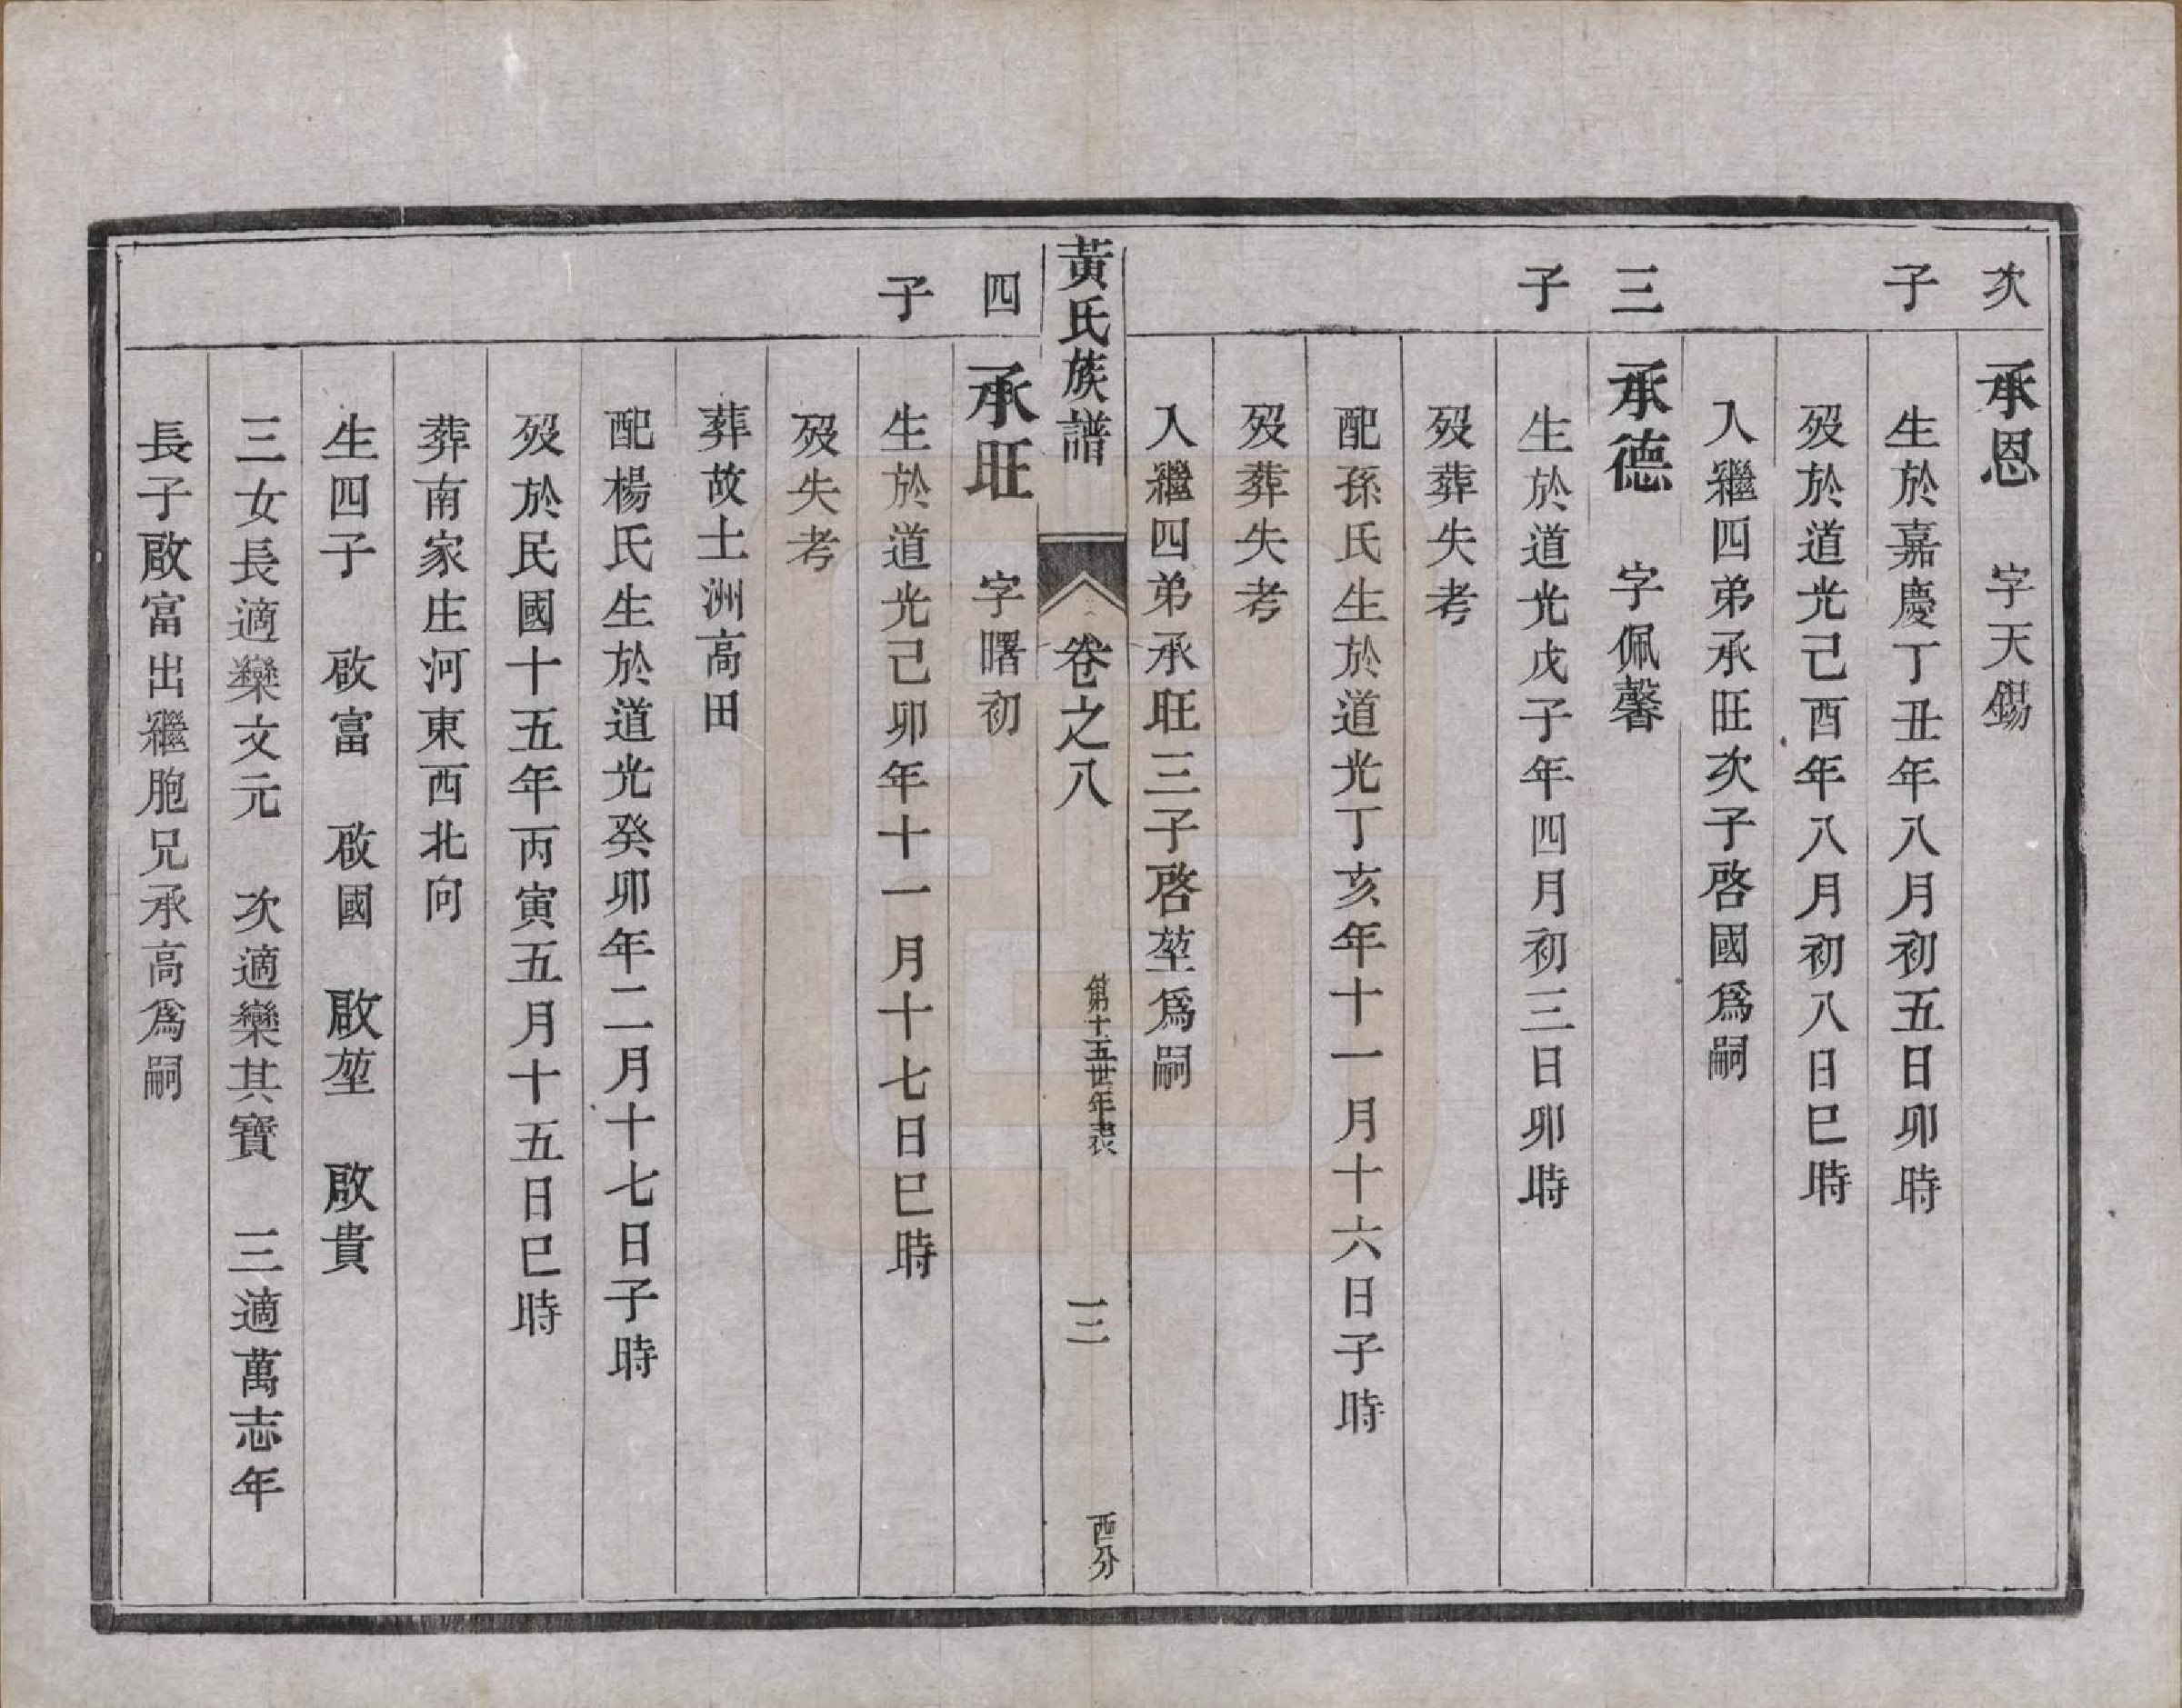 次子
承恩 字天錫
生於嘉慶丁丑年八月初五日卯時
歿於道光己酉年八月初八日巳時
入繼四弟承旺次子啓國爲嗣
三子
承德 字佩馨
生於道光戊子年四月初三日卯時
歿葬失考
配孫氏生於道光丁亥年十一月十六日子時
歿葬失考
入繼四弟承旺三子啓堃爲嗣
黃氏族譜
卷之八
第十五世年表
三
西分
四子
承旺 字曙初
生於道光己卯年十一月十七日巳時
歿失考
葬故土洲高田
配楊氏生於道光癸卯年二月十七日子時
歿於民國十五年丙寅五月十五日巳時
葬南家庄河東西北向
生四子 啟富 啟國 啟堃 啟貴
三女長適欒文元 次適欒其寶 三適萬志年
長子啟富出繼胞兄承高爲嗣